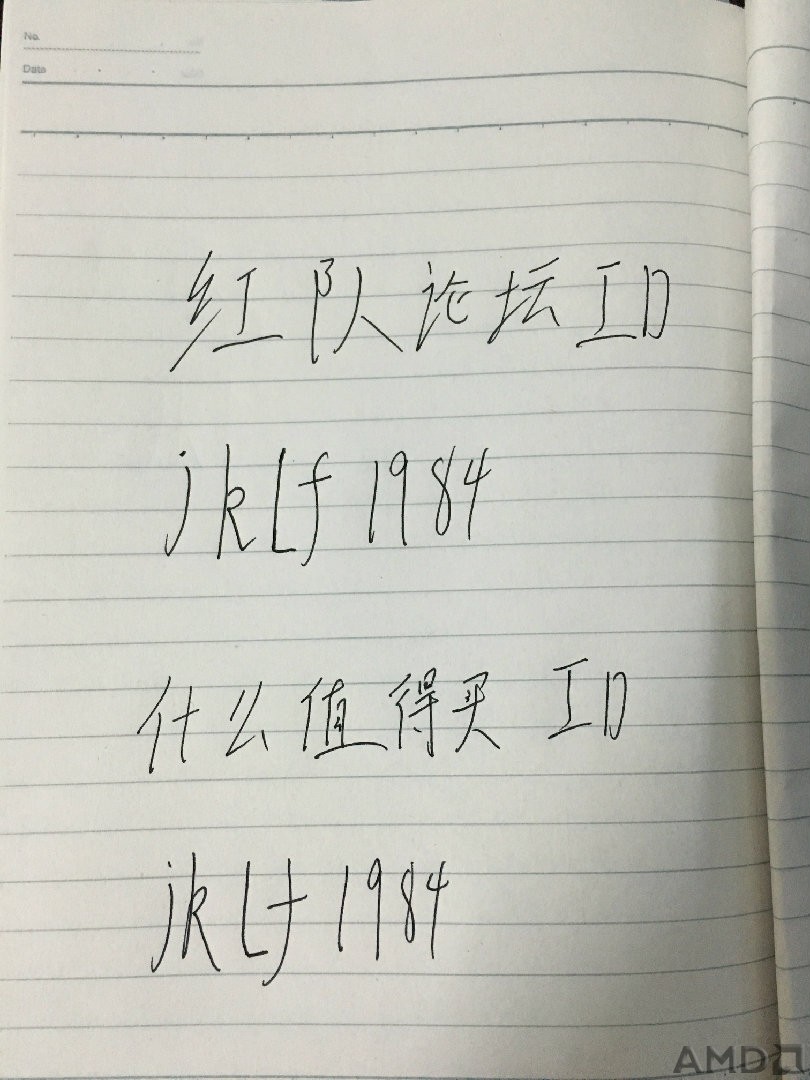 No.
Date
红队论坛ID
jkLf1984
什么值得买 ID
jkLf1984
AMD